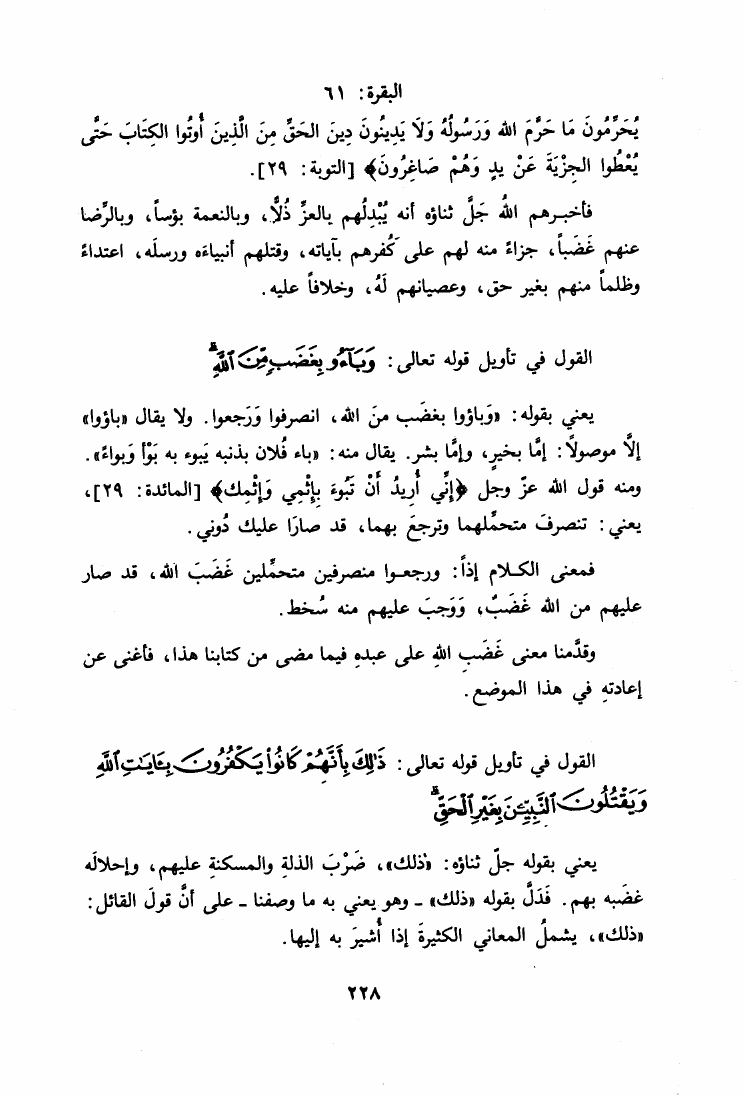 البقرة: ٦١
يُحَرِّمُونَ مَا حَرَّمَ الله وَرَسُولُهُ وَلَا يَدِينُونَ دِينَ الحَقِّ مِنَ الَّذِينَ أُوتُوا الكِتَابَ حَتَّى
يُعْطُوا الجِزْيَةَ عَنْ يدٍ وَهُمْ صَاغِرُونَ﴾ [التوبة: ٢٩].
فأخبرهم اللهُ جَلَّ ثناؤه أنه يُبْدِلُهم بالعزِّ ذُلًّا، وبالنعمة بؤساً، وبالرِّضا
عنهم غَضَباً، جزاءً منه لهم على كُفرهم بآياته، وقتلهم أنبياءَه ورسلَه، اعتداءً
وظلماً منهم بغير حق، وعصيانهم لَهُ، وخلافاً عليه.
القول في تأويل قوله تعالى: وَبَآءُو بِغَضَبٍ مِّنَ ٱللَّهِ ۗ
يعني بقوله: «وَباؤوا بغضَب منَ الله، انصرفوا وَرَجعوا. ولا يقال «باؤوا»
إلَّا موصولًا: إمَّا بخيرٍ، وإمَّا بشر. يقال منه: «باء فُلان بذنبه يَبوء به بَوْأ وَبواءً».
ومنه قول الله عزّ وجل ﴿إِنِّي أُرِيدُ أَنْ تَبُوءَ بِإِثْمِي وَإِثْمِك﴾ [المائدة: ٢٩]،
يعني: تنصرفَ متحمِّلهما وترجعَ بهما، قد صارَا عليك دُوني.
فمعنى الكلام إذاً: ورجعوا منصرفين متحمِّلين غَضَبَ الله، قد صار
عليهم من الله غَضَبٌ، وَوَجبَ عليهم منه سُخط.
وقدَّمنا معنى غَضَبِ اللهِ على عبدهِ فيما مضى من كتابنا هذا، فأغنى عن
إعادتهِ في هذا الموضع.
القول في تأويل قوله تعالى: ذَٰلِكَ بِأَنَّهُمْ كَانُوا۟ يَكْفُرُونَ بِـَٔايَـٰتِ ٱللَّهِ
وَيَقْتُلُونَ ٱلنَّبِيِّـۧنَ بِغَيْرِ ٱلْحَقِّ ۗ
يعني بقوله جلّ ثناؤه: «ذلك»، ضَرْبَ الذلةِ والمسكنةِ عليهم، وإحلالَه
غضَبه بهم. فَدَلَّ بقوله «ذلك» - وهو يعني به ما وصفنا - على أنَّ قولَ القائل:
«ذلك»، يشملُ المعاني الكثيرةَ إذا أُشيرَ به إليها.
٢٢٨